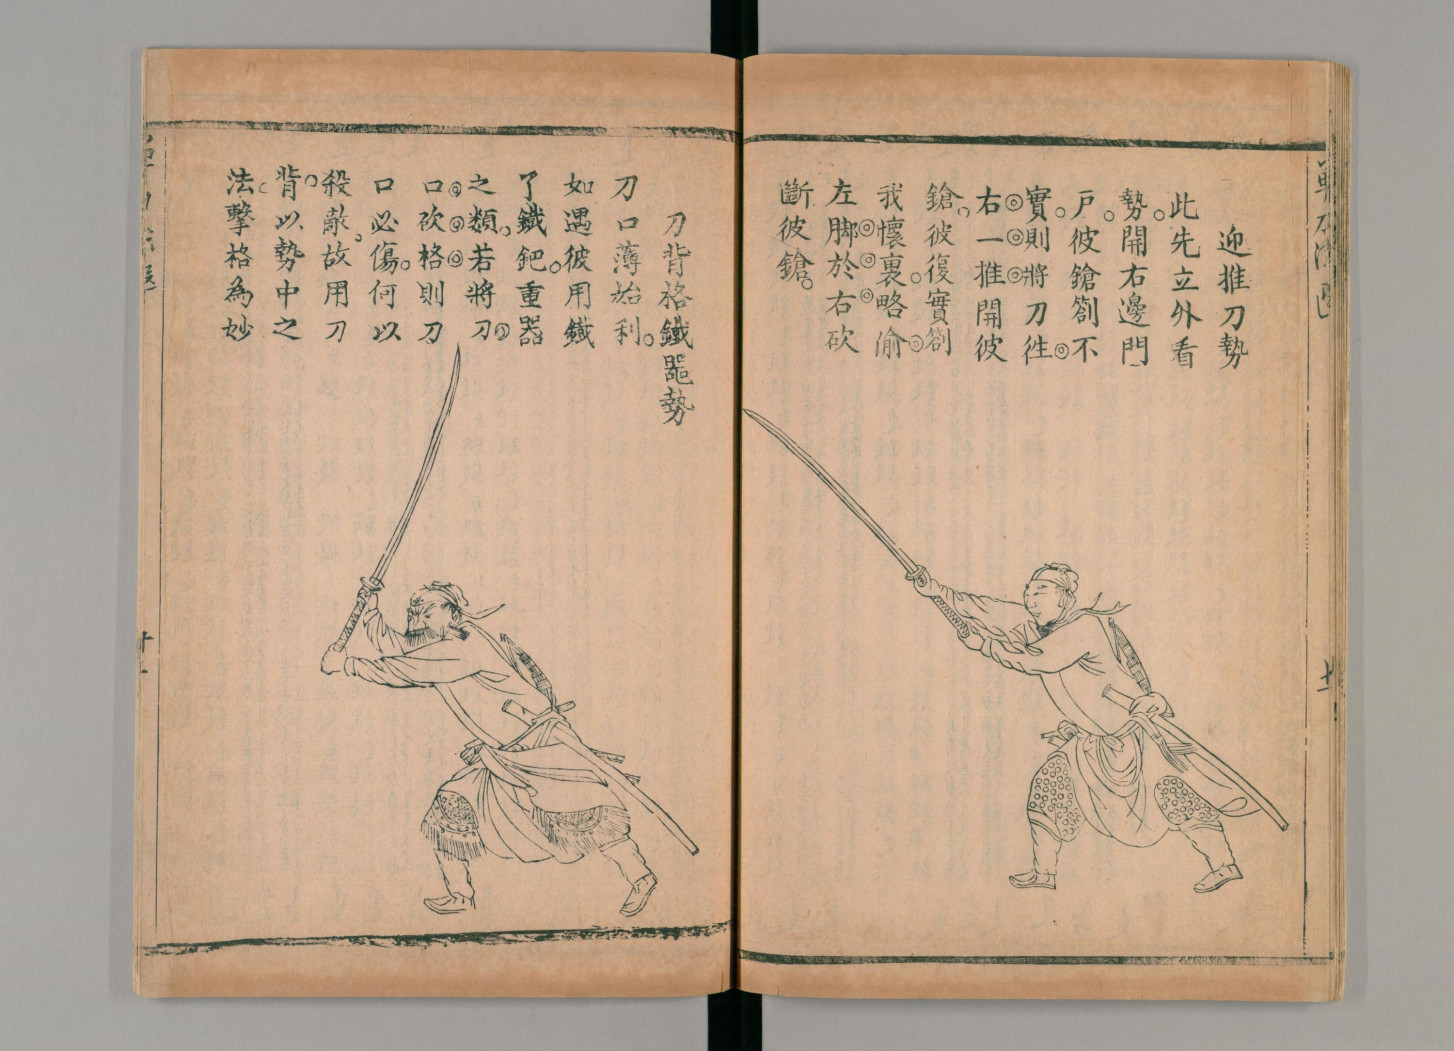 迎推刀勢
此先立外看
勢。開右邊門
戶。彼鎗劄不
實。則將刀徃
右一推開彼
鎗。彼復實劄
我懷裏。略偷
左脚於右砍
斷彼鎗。
十一
刀背格鐵器勢
刀口薄始利。
如遇彼用鐵
了鐵鈀重器
之類。若將刀
口砍格則刀
口必傷。何以
殺敵。故用刀
背以勢中之
法。擊格為妙